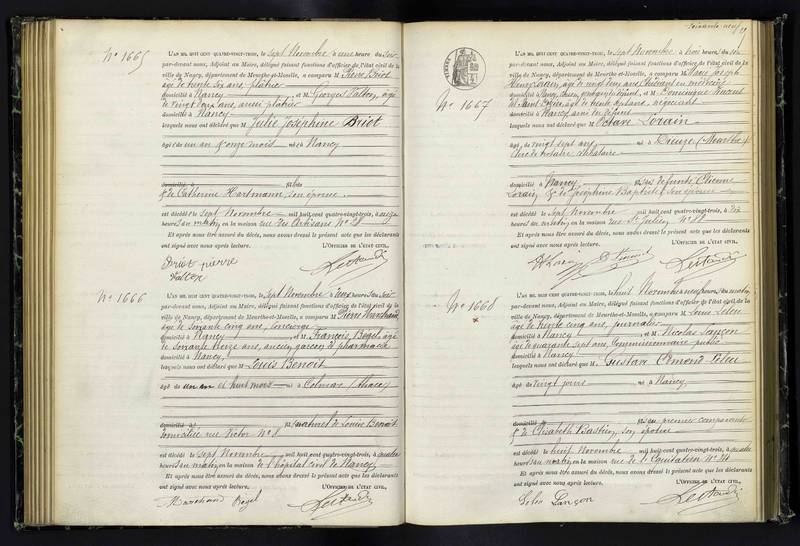 soixante-neuf
69
N° 1665
L'AN MIL HUIT CENT QUATRE-VINGT-TROIS, le sept Novembre à une heure du soir
par-devant nous, Adjoint au Maire, délégué faisant fonctions d'officier de l'état civil de la
ville de Nancy, département de Meurthe-et-Moselle, a comparu M Pierre Briot
âgé de trente six ans, platrier
domicilié à Nancy et M Georges Valton, âgé
de vingt deux ans, aussi platrier
domicilié à Nancy
lesquels nous ont déclaré que M Julie Joséphine Briot
âgé de un an et onze mois né à Nancy
domicilié à fille
& de Catherine Hartmann, son épouse
est décédé le sept Novembre mil huit cent quatre-vingt-trois, à onze
heures du matin, en la maison rue des Artisans N° 28
Et après nous être assuré du décès, nous avons dressé le présent acte que les déclarants
ont signé avec nous après lecture.
L'OFFICIER DE L'ÉTAT CIVIL,
Briot pierre
Valton
N° 1666
L'AN MIL HUIT CENT QUATRE-VINGT-TROIS, le sept Novembre à deux heures du soir
par-devant nous, Adjoint au Maire, délégué faisant fonctions d'officier de l'état civil de la
ville de Nancy, département de Meurthe-et-Moselle, a comparu M Pierre Marchand
âgé de soixante cinq ans, concierge
domicilié à Nancy et M François Bégel, âgé
de soixante treize ans, ancien garçon de pharmacie
domicilié à Nancy
lesquels nous ont déclaré que M Louis Benoit
âgé de un an et huit mois né à Colmar (Alsace)
domicilié à fils naturel de Louise Benoit
domiciliée rue Victor N° 8
est décédé le sept Novembre mil huit cent quatre-vingt-trois, à quatre
heures du matin, en la maison de l'hôpital civil de Nancy
Et après nous être assuré du décès, nous avons dressé le présent acte que les déclarants
ont signé avec nous après lecture.
L'OFFICIER DE L'ÉTAT CIVIL,
Marchand Bégel
N° 1667
L'AN MIL HUIT CENT QUATRE-VINGT-TROIS, le sept Novembre à trois heures du soir
par-devant nous, Adjoint au Maire, délégué faisant fonctions d'officier de l'état civil de la
ville de Nancy, département de Meurthe-et-Moselle, a comparu M Marie Joseph
âgé de vingt deux ans étudiant en médecine
domicilié à Nancy et M Dominique
âgé de trente sept ans, négociant
domicilié à Nancy ami du défunt
lesquels nous ont déclaré que M Octave Lorain
âgé de vingt sept ans né à Dieuze (Meurthe)
clerc de notaire célibataire
domicilié à Nancy fils des défunts Etienne
Lorain, & de Joséphine Baptiste, son épouse
est décédé le sept Novembre mil huit cent quatre-vingt-trois, à dix
heures du matin, en la maison rue St Julien N°
Et après nous être assuré du décès, nous avons dressé le présent acte que les déclarants
ont signé avec nous après lecture.
L'OFFICIER DE L'ÉTAT CIVIL,
N° 1668
L'AN MIL HUIT CENT QUATRE-VINGT-TROIS, le huit Novembre à neuf heures du matin
par-devant nous, Adjoint au Maire, délégué faisant fonctions d'officier de l'état civil de la
ville de Nancy, département de Meurthe-et-Moselle, a comparu M Louis Leleu
âgé de trente cinq ans, journalier
domicilié à Nancy et M Nicolas Lançon
âgé de quarante sept ans, commissionnaire public
domicilié à Nancy
lesquels nous ont déclaré que M Gustave Edmond Leleu
âgé de vingt jours né à Nancy
domicilié à fils du premier comparant
& de Elisabeth Bastien, son épouse
est décédé le huit Novembre mil huit cent quatre-vingt-trois, à quatre
heures du matin, en la maison rue de l'Equitation N°
Et après nous être assuré du décès, nous avons dressé le présent acte que les déclarants
ont signé avec nous après lecture.
L'OFFICIER DE L'ÉTAT CIVIL,
Leleu Lançon